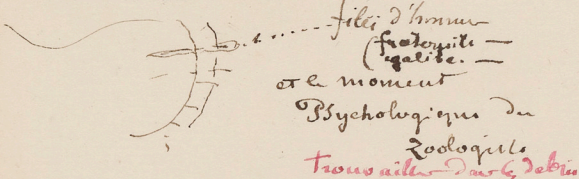 filet d'honneur
(fraternité —
égalité. —
et le moment
Psychologique du
Zoologiste
Trouvailles dans le